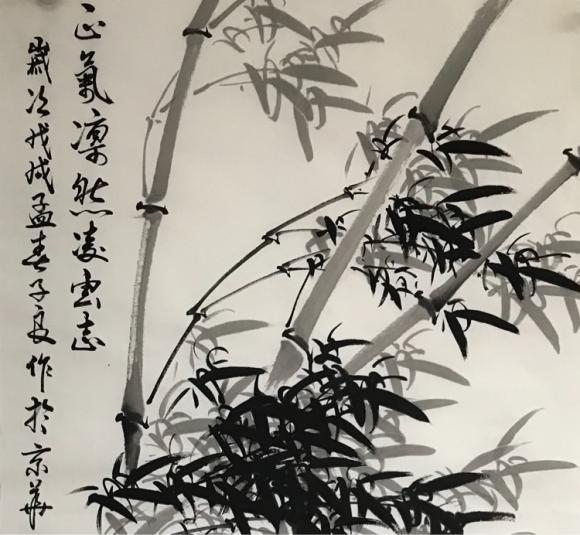 正氣凛然凌雲志
歲次戊戌孟春子夜作於京華